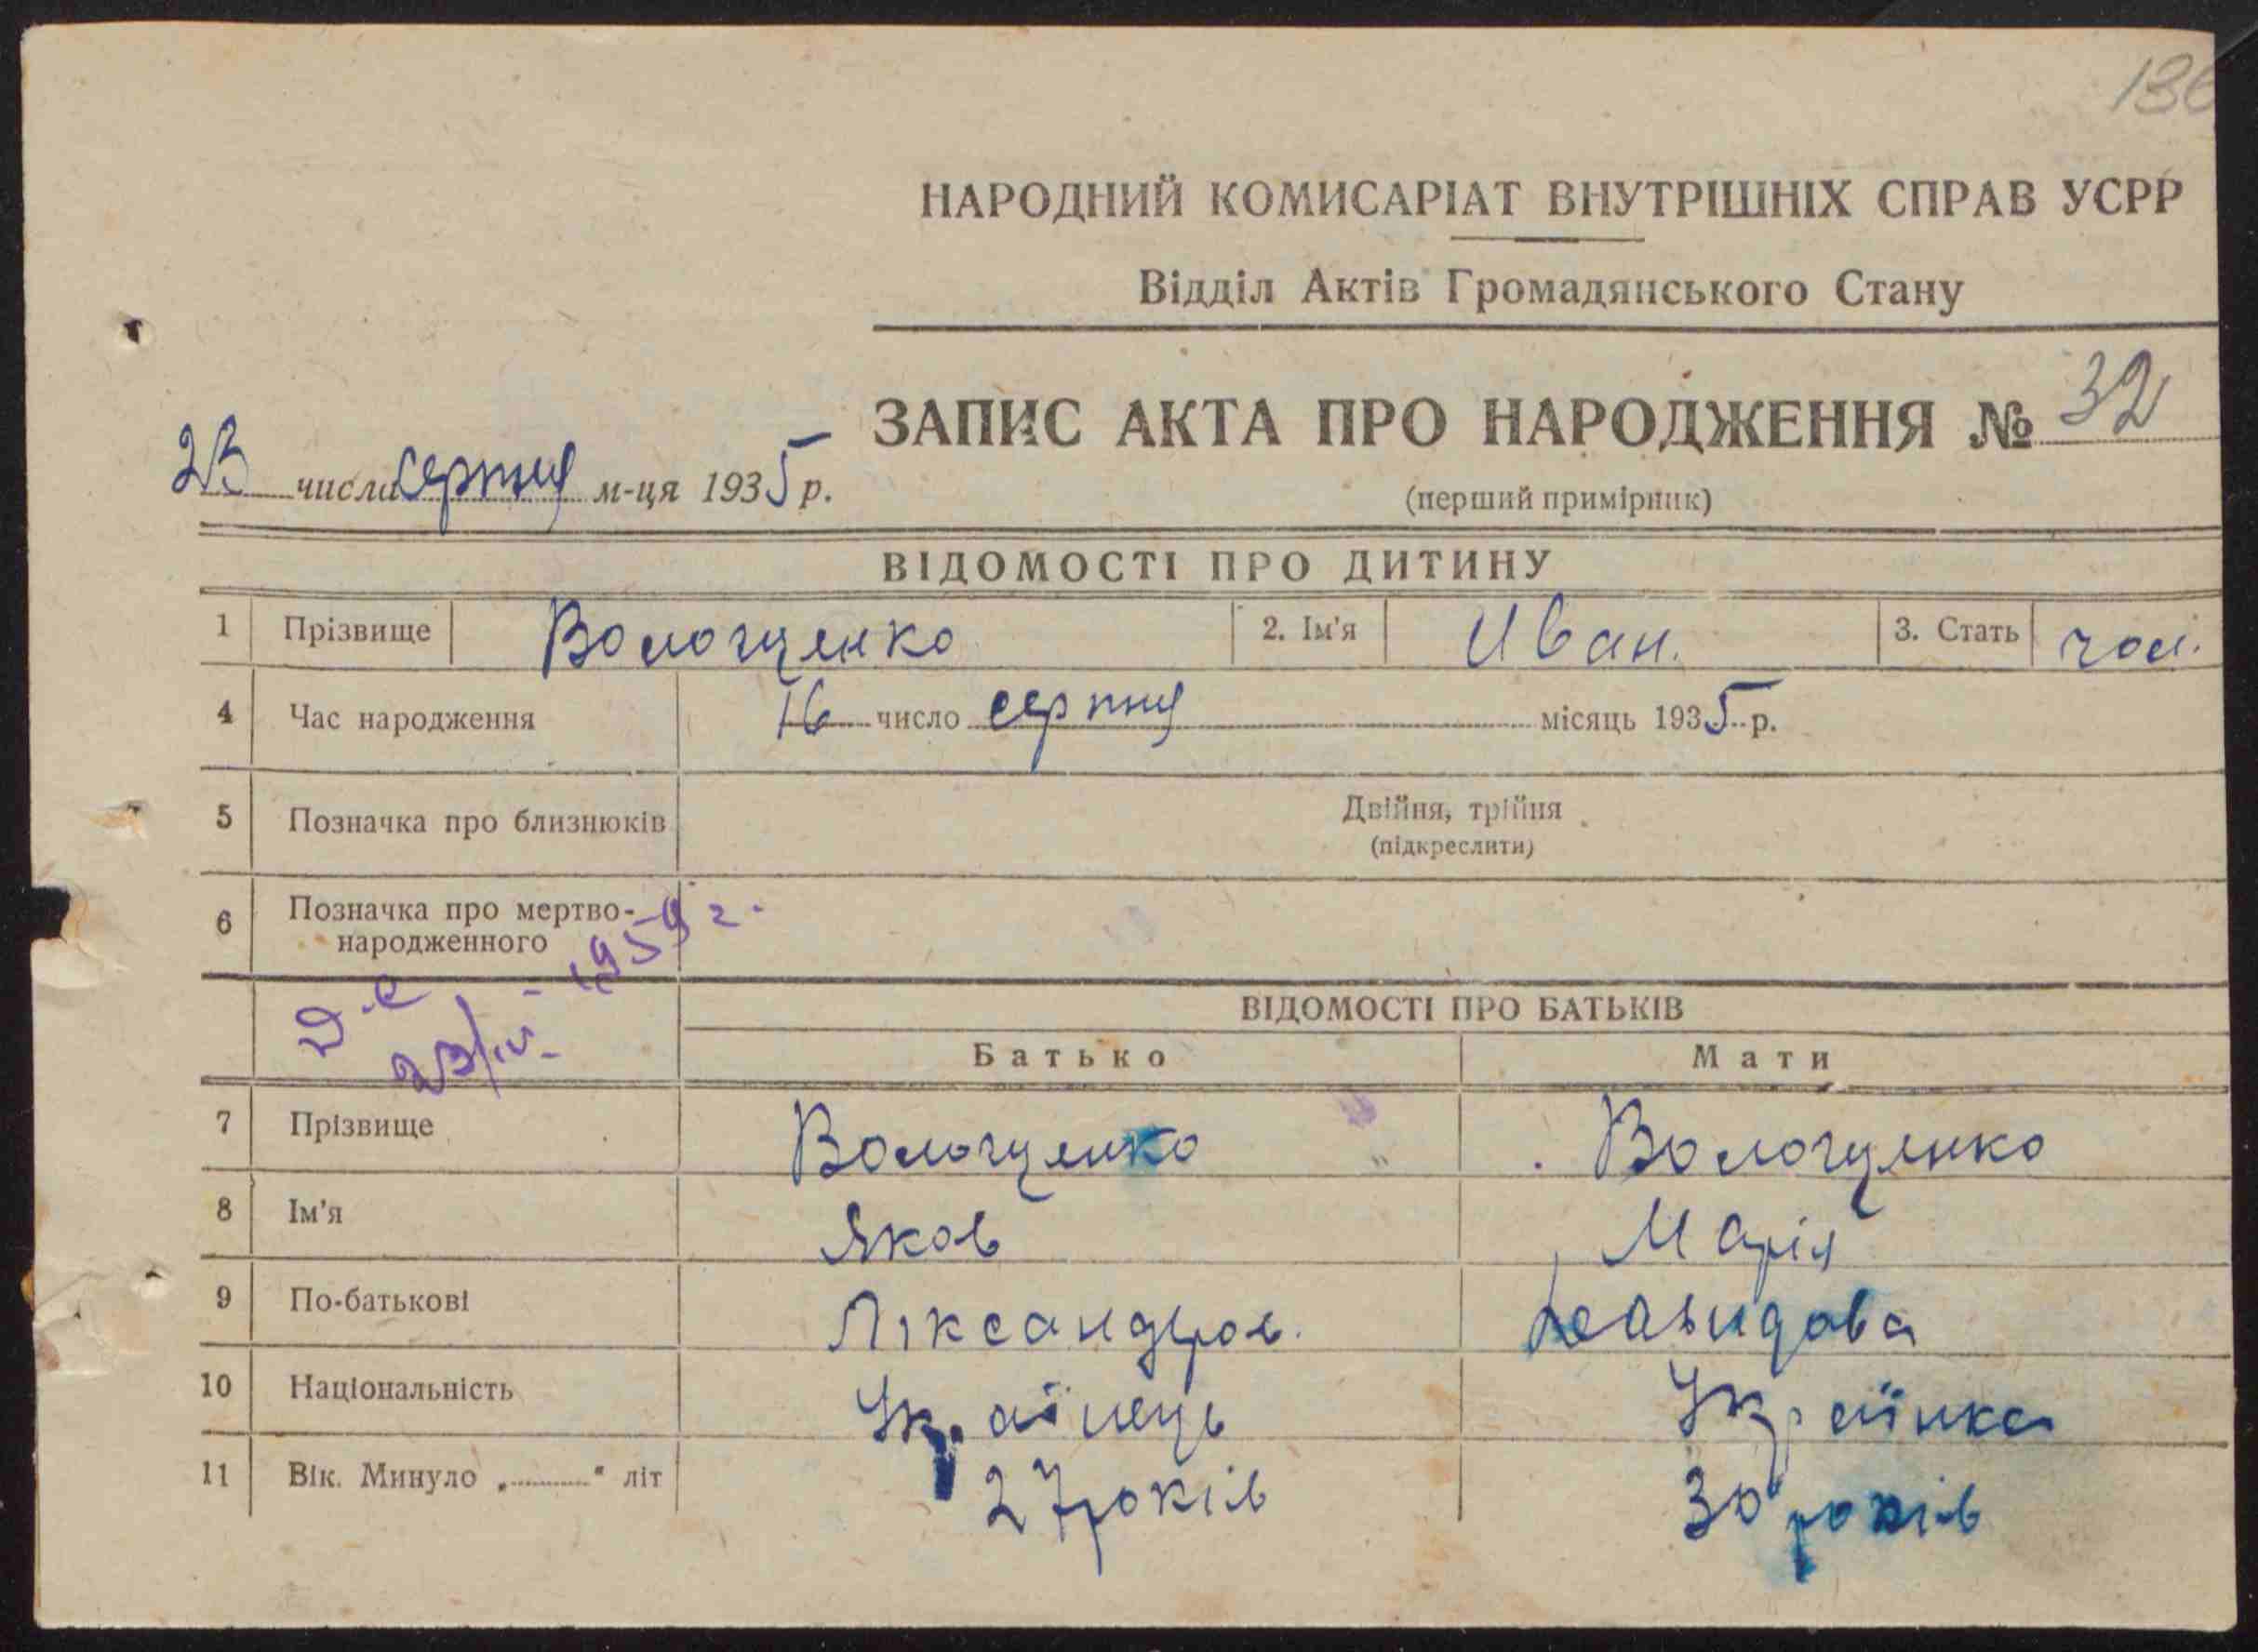 136
НАРОДНИЙ КОМИСАРІАТ ВНУТРІШНІХ СПРАВ УСРР
Відділ Актів Громадянського Стану
ЗАПИС АКТА ПРО НАРОДЖЕННЯ № 32
23 числа серпня м-ця 1935 р.
(перший примірник)
ВІДОМОСТІ ПРО ДИТИНУ
1 Прізвище Вологценко 2. Ім'я Иван. 3. Стать чол.
4 Час народження 16 число серпня місяць 1935 р.
5 Позначка про близнюків Двійня, трійня
(підкреслити)
6 Позначка про мертво-
народженного
23/IV - 1959 г.
ВІДОМОСТІ ПРО БАТЬКІВ
Батько Мати
7 Прізвище Вологценко Вологценко
8 Ім'я Яков Марія
9 По-батькові Ліксандров. Давидова
10 Національність Українець Українка
11 Вік. Минуло „ " літ 27 років 30 років